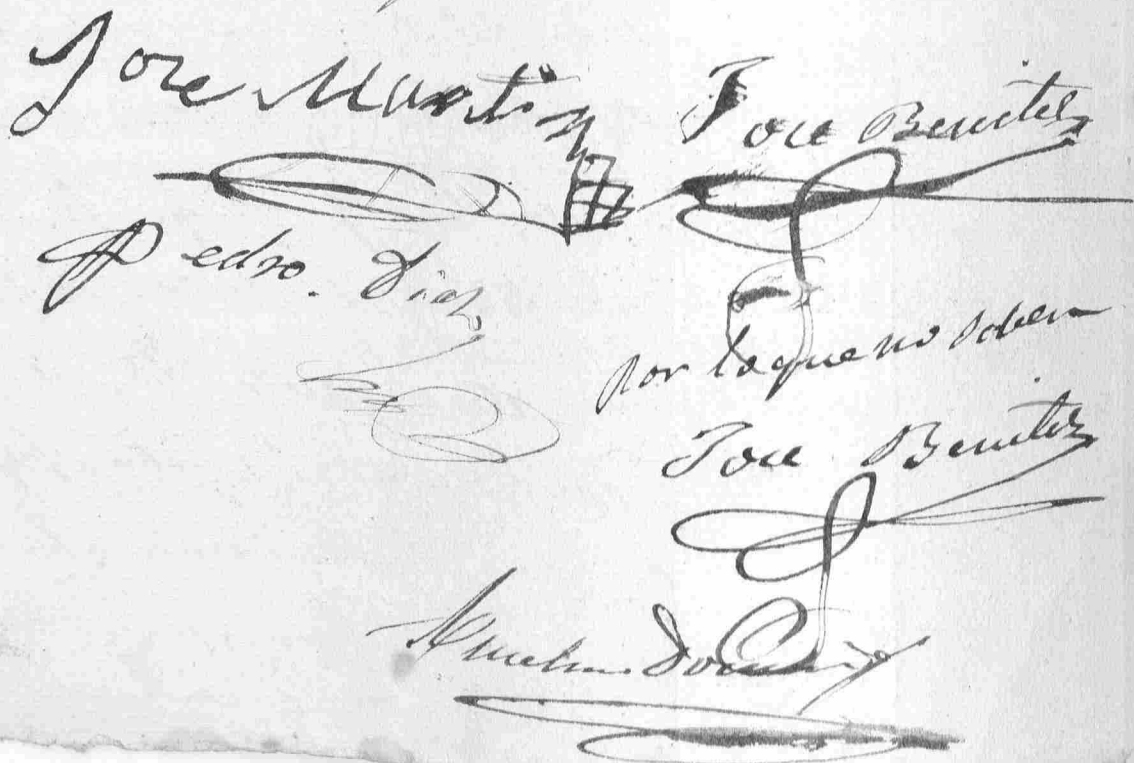 Jose Martin Jose Benitez
Pedro. Diaz
por los que no saben
Jose Benitez